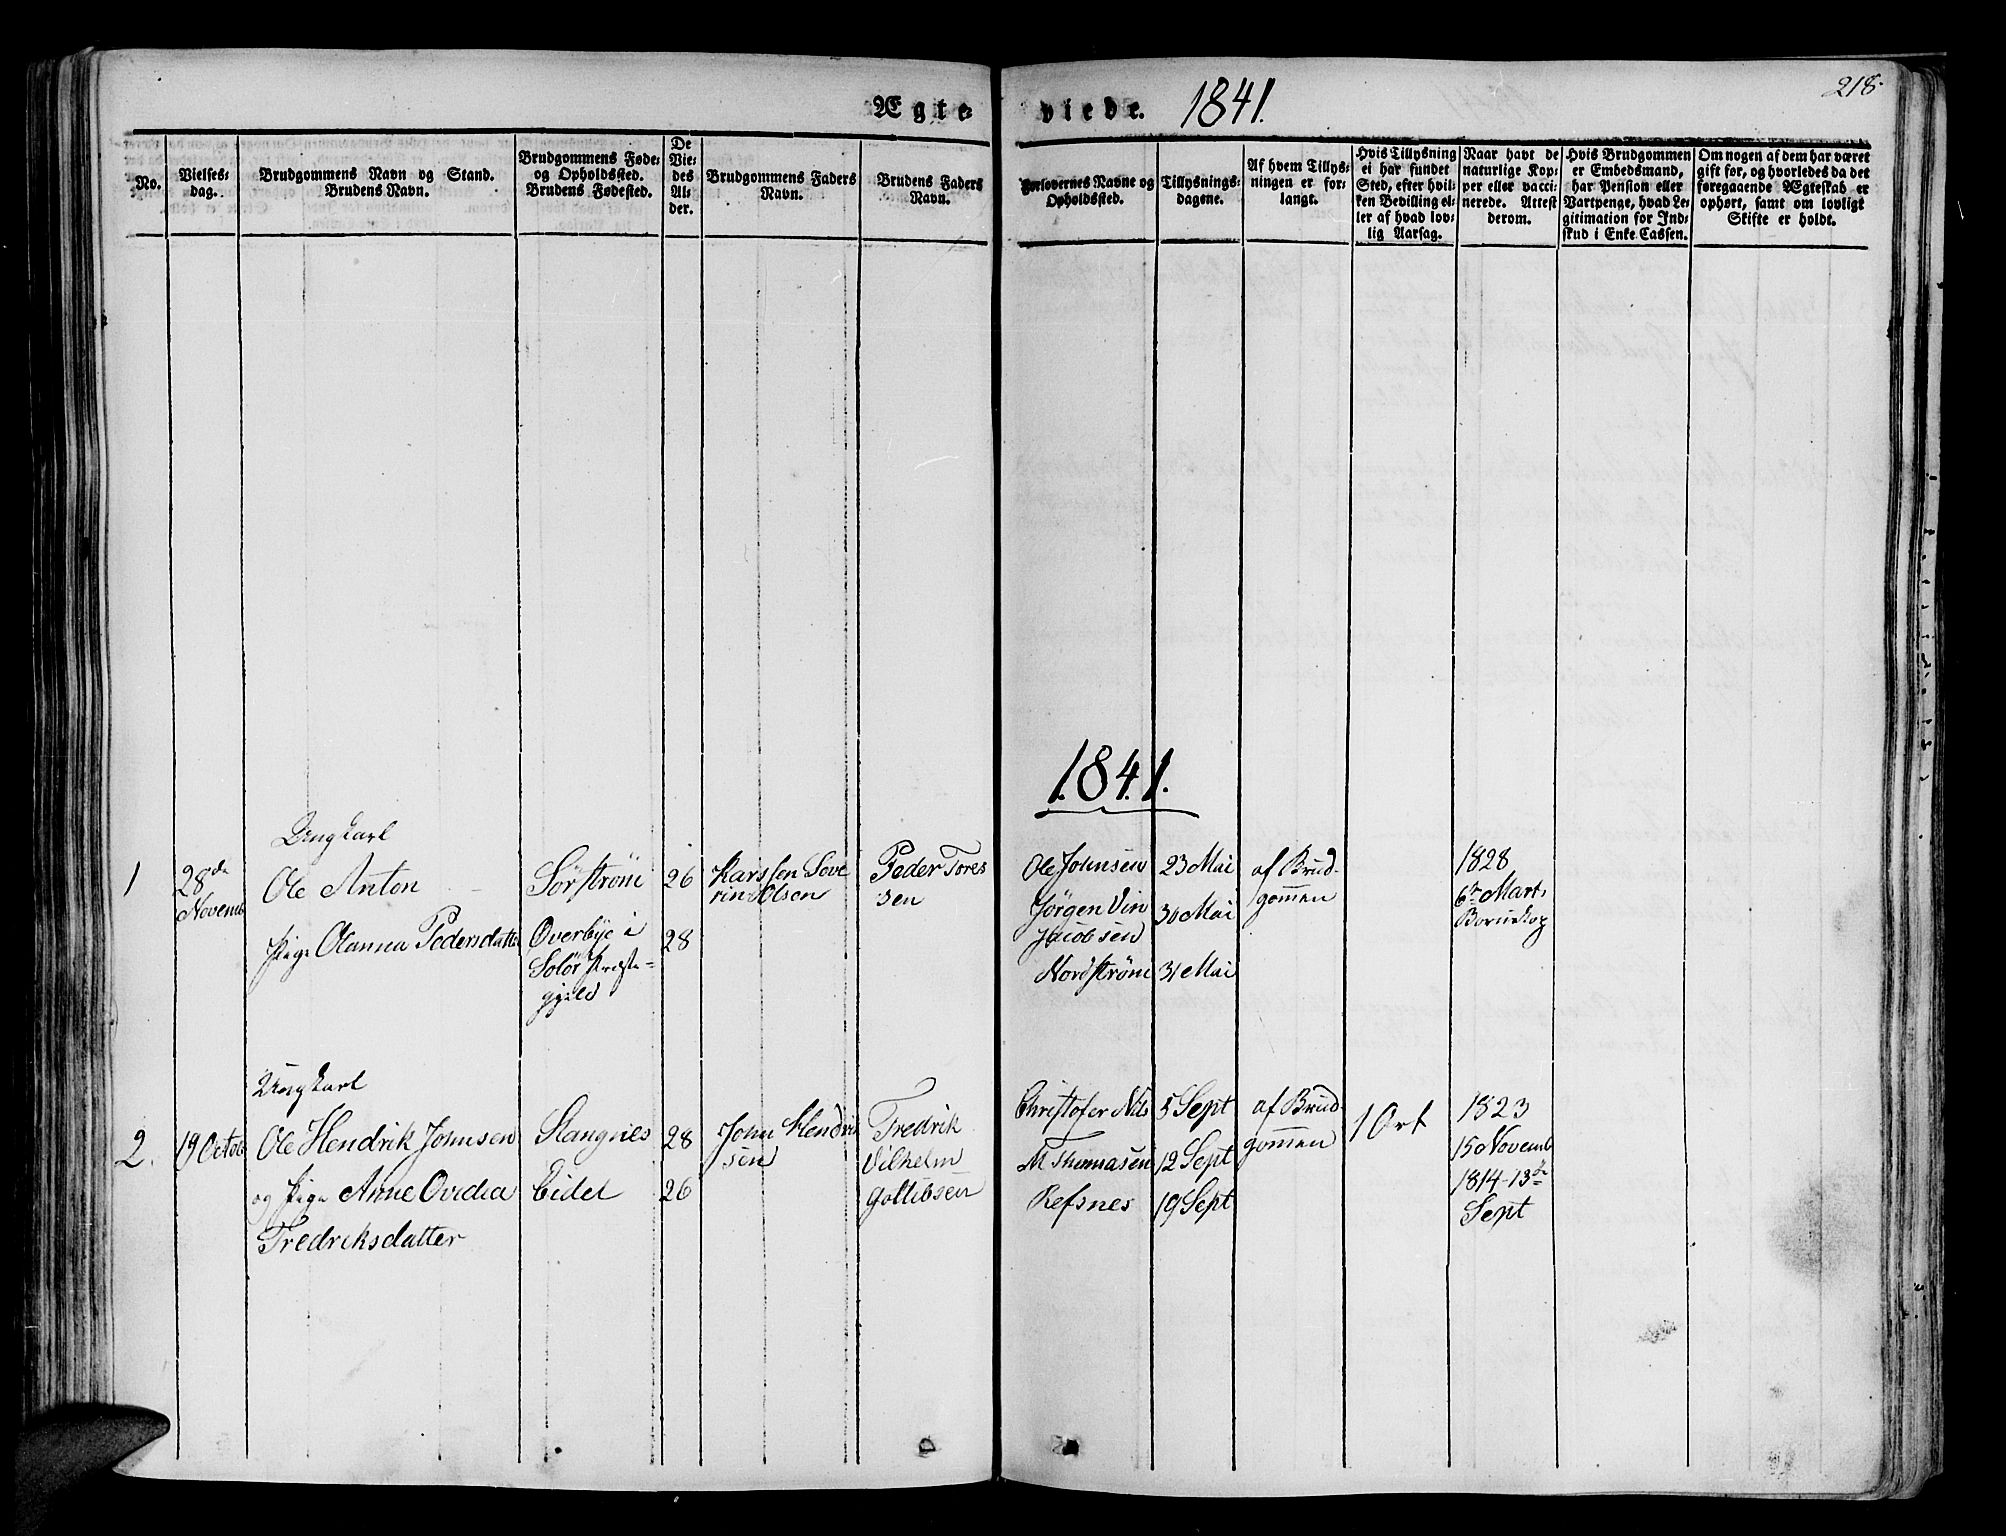 Ægte viede. 1841.
218.
No.
Vielses-
dag.
Brudgommens Navn og Stand.
Brudens Navn.
Brudgommens Føde-
og Opholdssted.
Brudens Fødested.
De
Vie-
des
Al-
der.
Brudgommens Faders
Navn.
Brudens Faders
Navn.
Forlovernes Navne og
Opholdssted.
Tillysnings-
dagene.
Af hvem Tillys-
ningen er for-
langt.
Hvis Tillysning
ei har fundet
Sted, efter hvil-
ken Bevilling el-
ler af hvad lov-
lig Aarsag.
Naar havt de
naturlige Kop-
per eller vacci-
nerede. Attest
derom.
Hvis Brudgommen
er Embedsmand,
har Pension eller
Vartpenge, hvad Le-
gitimation for Ind-
skud i Enke-Cassen.
Om nogen af dem har været
gift før, og hvorledes da det
foregaaende Ægteskab er
ophørt, samt om lovligt
Skifte er holdt.
1841.
1
28de
Novemb
Ungkarl
Ole Anton
Pige Olanna Pedersdatter
Sørstrøm
Overbye i
Solør Præste-
gjeld
26
28
Karssen Seve
rin Olsen
Peder Tores
sen
Ole Johnsen
Jørgen
Jacobsen
Nordstrøm
23 Mai
30 Mai
31 Mai
af Brud-
gommen
1828
6te Marts
2.
19 Octob
Ungkarl
Ole Hendrik Johnsen
og Pige Anne Ovedia
Fredriksdatter
Stangnes
Eidet
28
26
John Hendrik
sen
Fredrik
Vilhelm
Gottlibsen
Christofer Nils
M Thomasen
Refsnes
5 Sept
12 Sept
19 Sept
af Brud
gommen
1 Ort
1823
15 Novemb
1814-13de
Sept